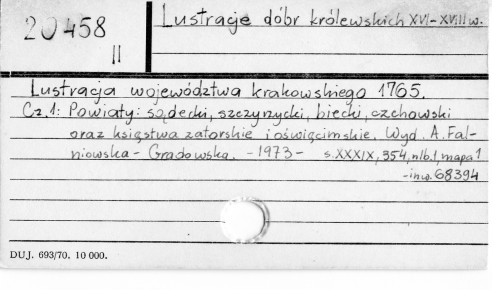 20458
II
Lustracje dóbr królewskich XVI-XVIII w.
Lustracja województwa krakowskiego 1765.
Cz. 1: Powiaty: sądecki, szczyrzycki, biecki, czchowski
oraz księstwa zatorskie i oświęcimskie, Wyd. A. Fal-
niowska-Gradowska. -1973- s. XXXIX, 354, nlb. 1, mapa 1
-inw. 68394
DUJ. 693/70. 10 000.